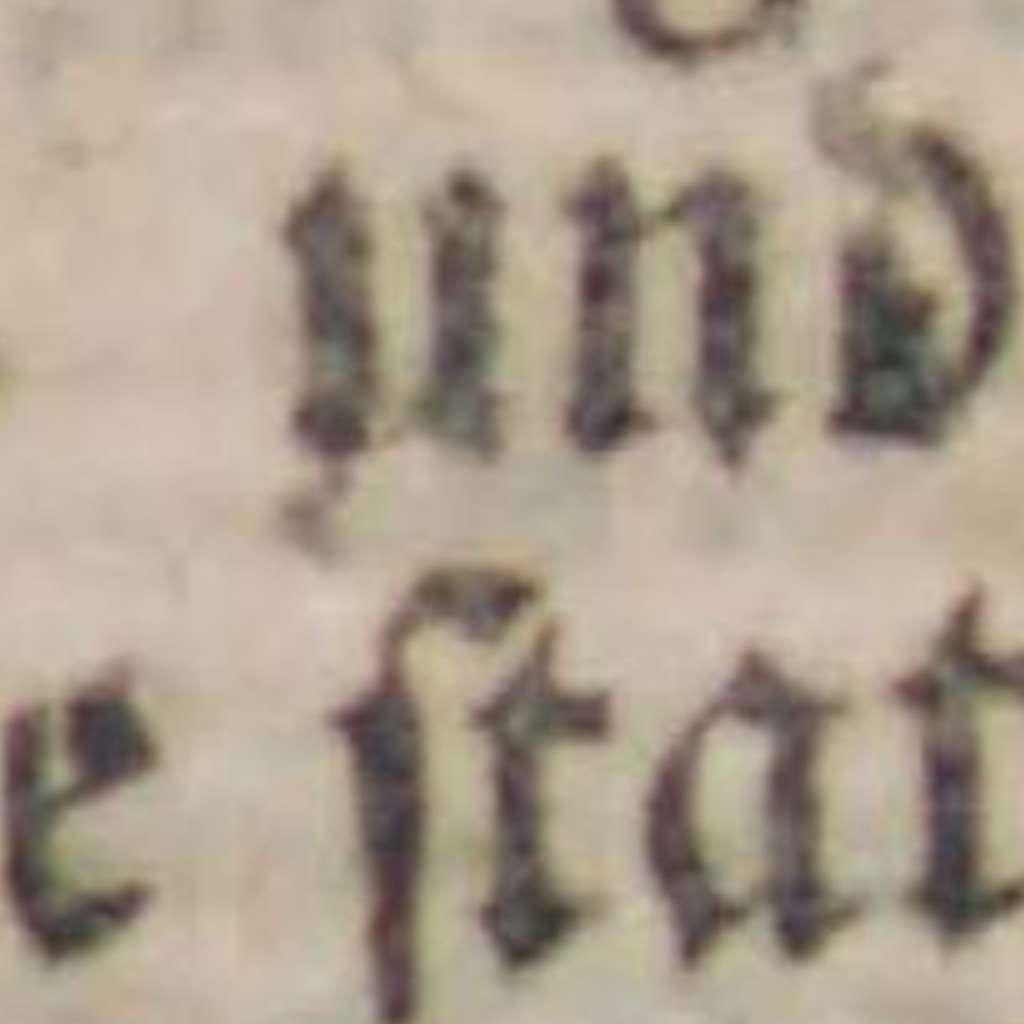 und
e ſtat